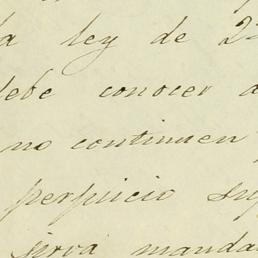 la ley de 2
debe conocer a
no continuen
perjuicio su
sirva manda